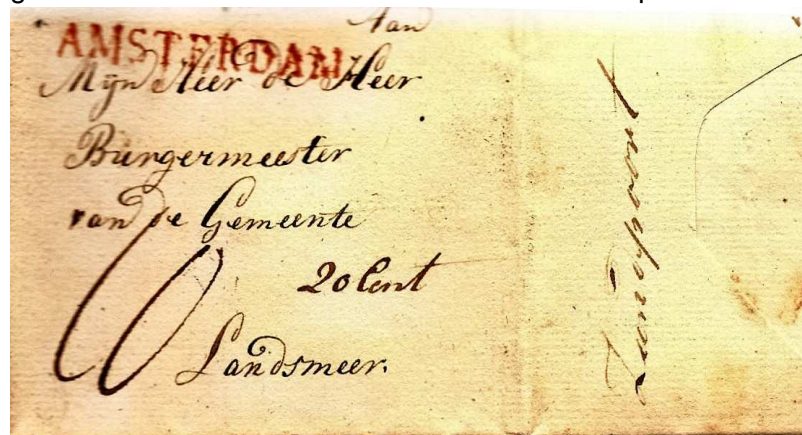 Aan
AMSTERDAM
Mijn Heer de Heer
Burgermeester
van de Gemeente
20 Cent
Landsmeer.
Zandpoort